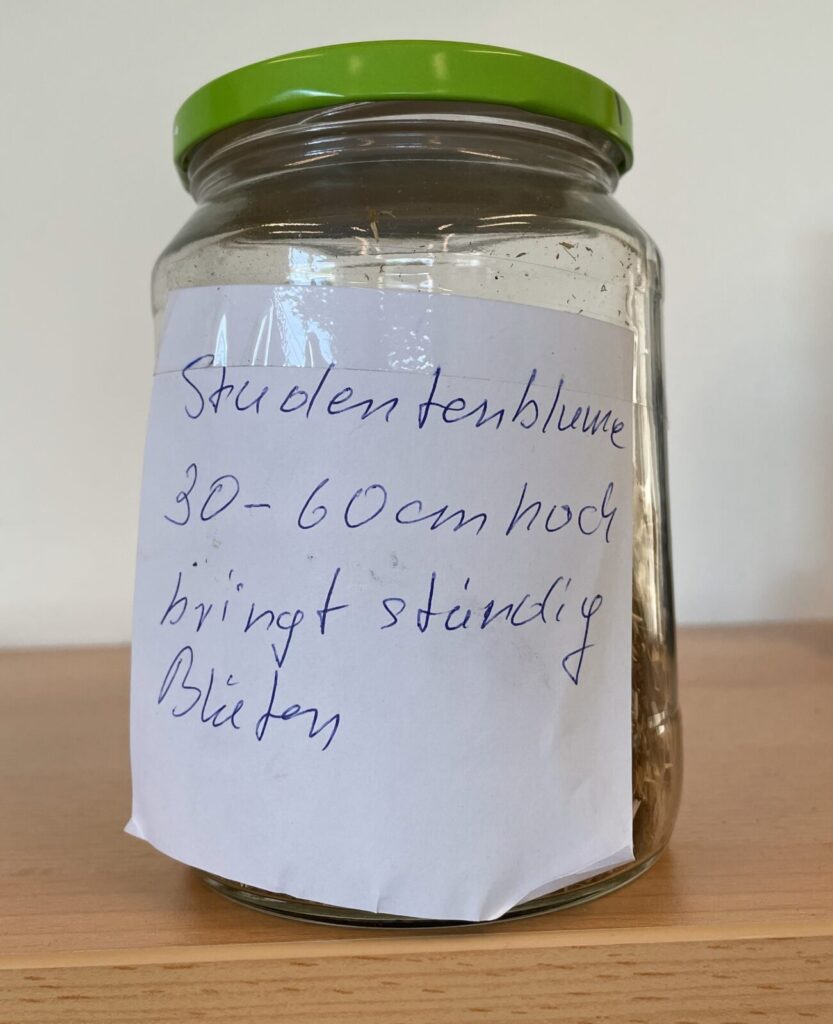 Studentenblume
30-60cm hoch
bringt ständig
Blüten